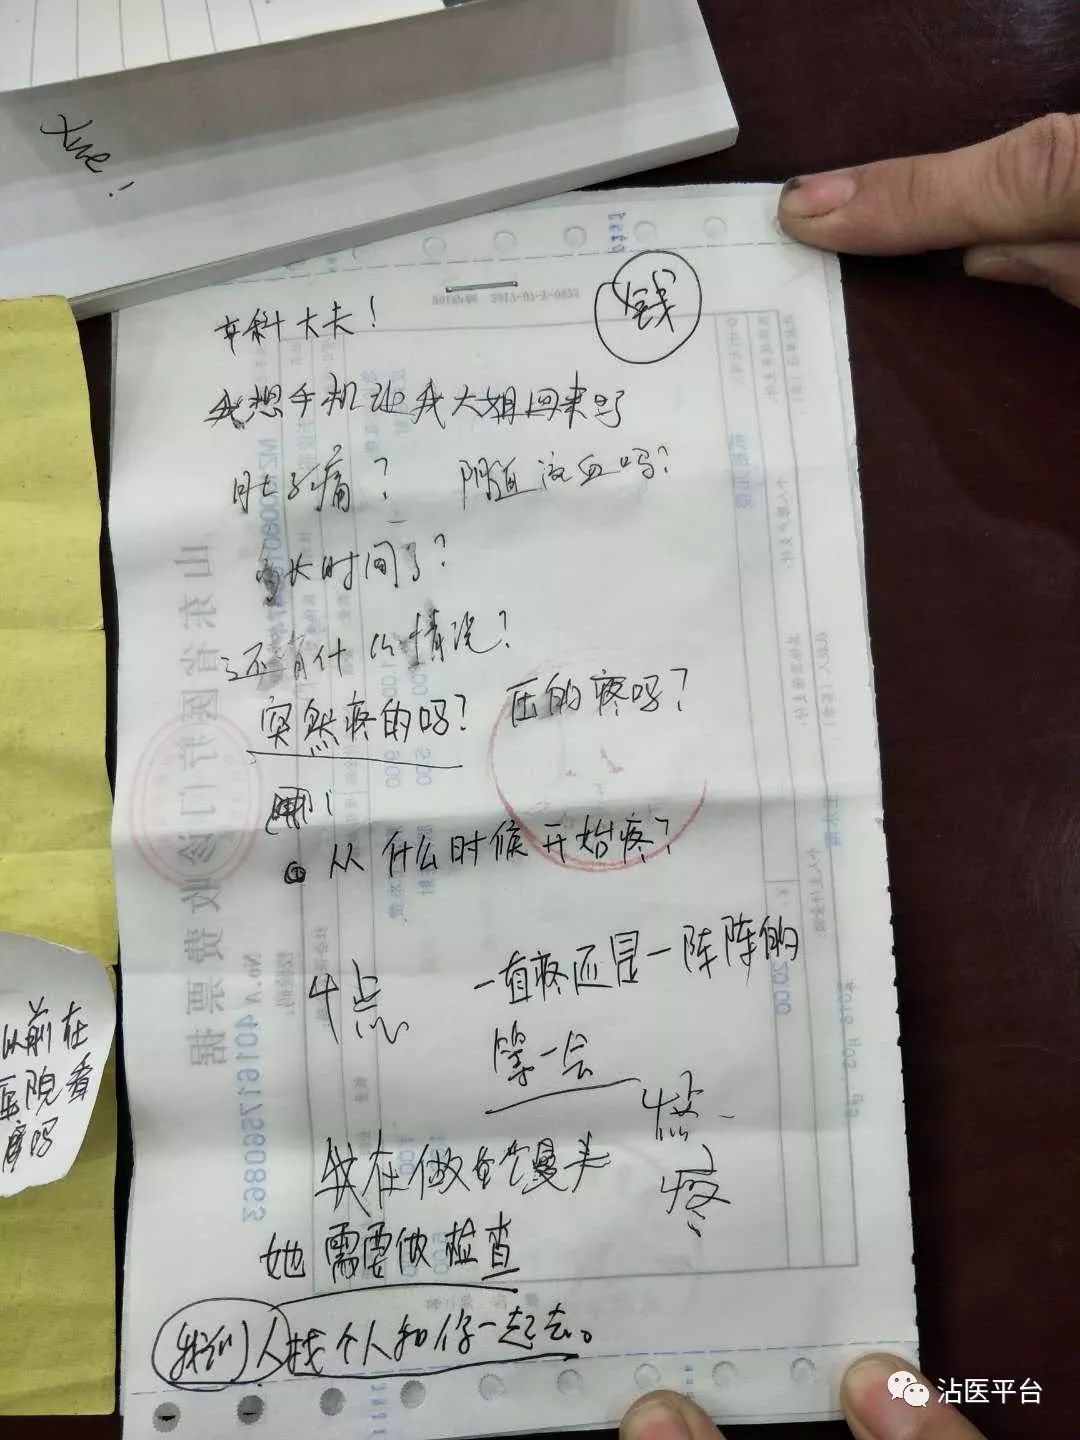 Xue!
钱
大夫!
我想手机让我大姐回来
肚子痛? 阴道流血吗?
多长时间了?
还有什么情况?
突然疼的吗? 压的疼吗?
从什么时候开始疼?
4点
一直疼还是一阵阵的
等一会
4点
疼
我在做 馒头
她需要做检查
我们
找个人和你一起去。
以前在
医院看
吗
山东省医疗门诊收费票据
No.A 401617560863
沾医平台